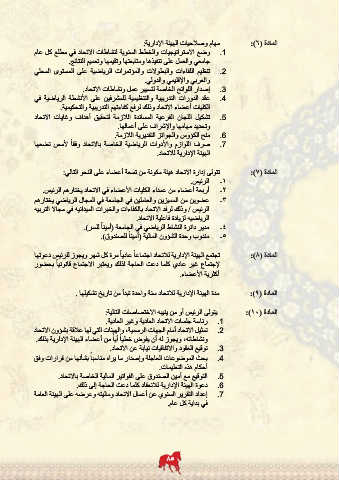 المادة (٦): مهام وصلاحيات الهيئة الإدارية:
1. وضع الاستراتيجيات والخطط السنوية لنشاطات الاتحاد في مطلع كل عام
جامعي والعمل على تنفيذها ومتابعتها وتقييمها وتعميم النتائج.
2. تنظيم اللقاءات والبطولات والمؤتمرات الرياضية على المستوى المحلي
والعربي والإقليمي والدولي.
3. إصدار اللوائح الخاصة لتسيير عمل ونشاطات الاتحاد.
4. عقد الدورات التدريبية والتنظيمية للمشرفين على الأنشطة الرياضية في
الكليات أعضاء الاتحاد وذلك لرفع كفاءتهم التدريبية والتحكيمية.
5. تشكيل اللجان الفرعية المساندة اللازمة لتحقيق أهداف وغايات الاتحاد
وتحديد مهامها والإشراف على أعمالها.
6. منح الكؤوس والجوائز التقديرية اللازمة.
7. صرف اللوازم والأدوات الرياضية الخاصة بالاتحاد وفقاً لأسس تضعها
الهيئة الإدارية للاتحاد.
المادة (٧): تتولى إدارة الاتحاد هيئة مكونة من تسعة أعضاء على النحو التالي:
١- الرئيس.
٢- أربعة أعضاء من عمداء الكليات الأعضاء في الاتحاد يختارهم الرئيس.
٣- عضوين من المميزين والعاملين في الجامعة في المجال الرياضي يختارهم
الرئيس / وذلك لرفد الاتحاد بالكفاءات والخبرات الميدانية في مجالا التربيه
الرياضيه لزيادة فاعلية الاتحاد.
٤- مدير دائرة النشاط الرياضي في الجامعة (أميناً للسر).
٥- مندوب وحدة الشؤون المالية (أميناً للصندوق).
المادة (٨): تجتمع الهيئة الإدارية للاتحاد اجتماعاً عادياً مرة كل شهر ويجوز للرئيس دعوتها
لإجتماع غير عادي كلما دعت الحاجة لذلك ويعتبر الاجتماع قانونياً بحضور
أكثرية الأعضاء.
المادة (٩): مدة الهيئة الإدارية للاتحاد سنة واحدة تبدأ من تاريخ تشكيلها .
المادة (١٠): يتولى الرئيس أو من ينيبه الاختصاصات التالية:
1. رئاسة جلسات الاتحاد العادية وغير العادية.
2. تمثيل الاتحاد أمام الجهات الرسمية، والهيئات التي لها علاقة بشؤون الاتحاد
ونشاطاته، ويجوز له أن يفوض خطياً أياً من أعضاء الهيئة الإدارية بذلك.
3. توقيع العقود والاتفاقيات نيابة عن الاتحاد.
4. بحث الموضوعات العاجلة وإصدار ما يراه مناسباً بشأنها من قرارات وفق
أحكام هذه التعليمات.
5. التوقيع مع أمين الصندوق على الفواتير المالية الخاصة بالاتحاد.
6. دعوة الهيئة الإدارية للانعقاد كلما دعت الحاجة إلى ذلك.
7. إعداد التقرير السنوي عن أعمال الاتحاد وماليته وعرضه على الهيئة العامة
في بداية كل عام.